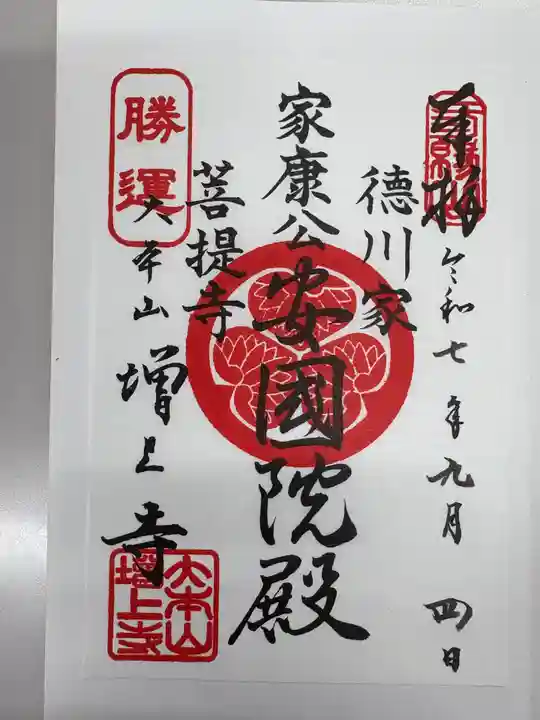 奉拝
令和七年九月四日
徳川家
家康公
安國院殿
菩提寺
勝運
大本山増上寺
大本山
増上寺